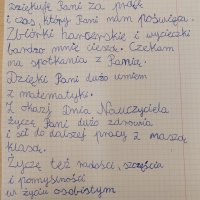 Dziękuję Pani za pracę
i czas, który Pani nam poświęca.
Zbiórki harcerskie i wycieczki
bardzo mnie cieszą. Czekam
na spotkania z Panią.
Dzięki Pani dużo umiem
z matematyki.
Z okazji Dnia Nauczyciela
życzę Pani dużo zdrowia
i sił do dalszej pracy z naszą
klasą.
Życzę też radości, szczęścia
i pomyślności
w życiu osobistym